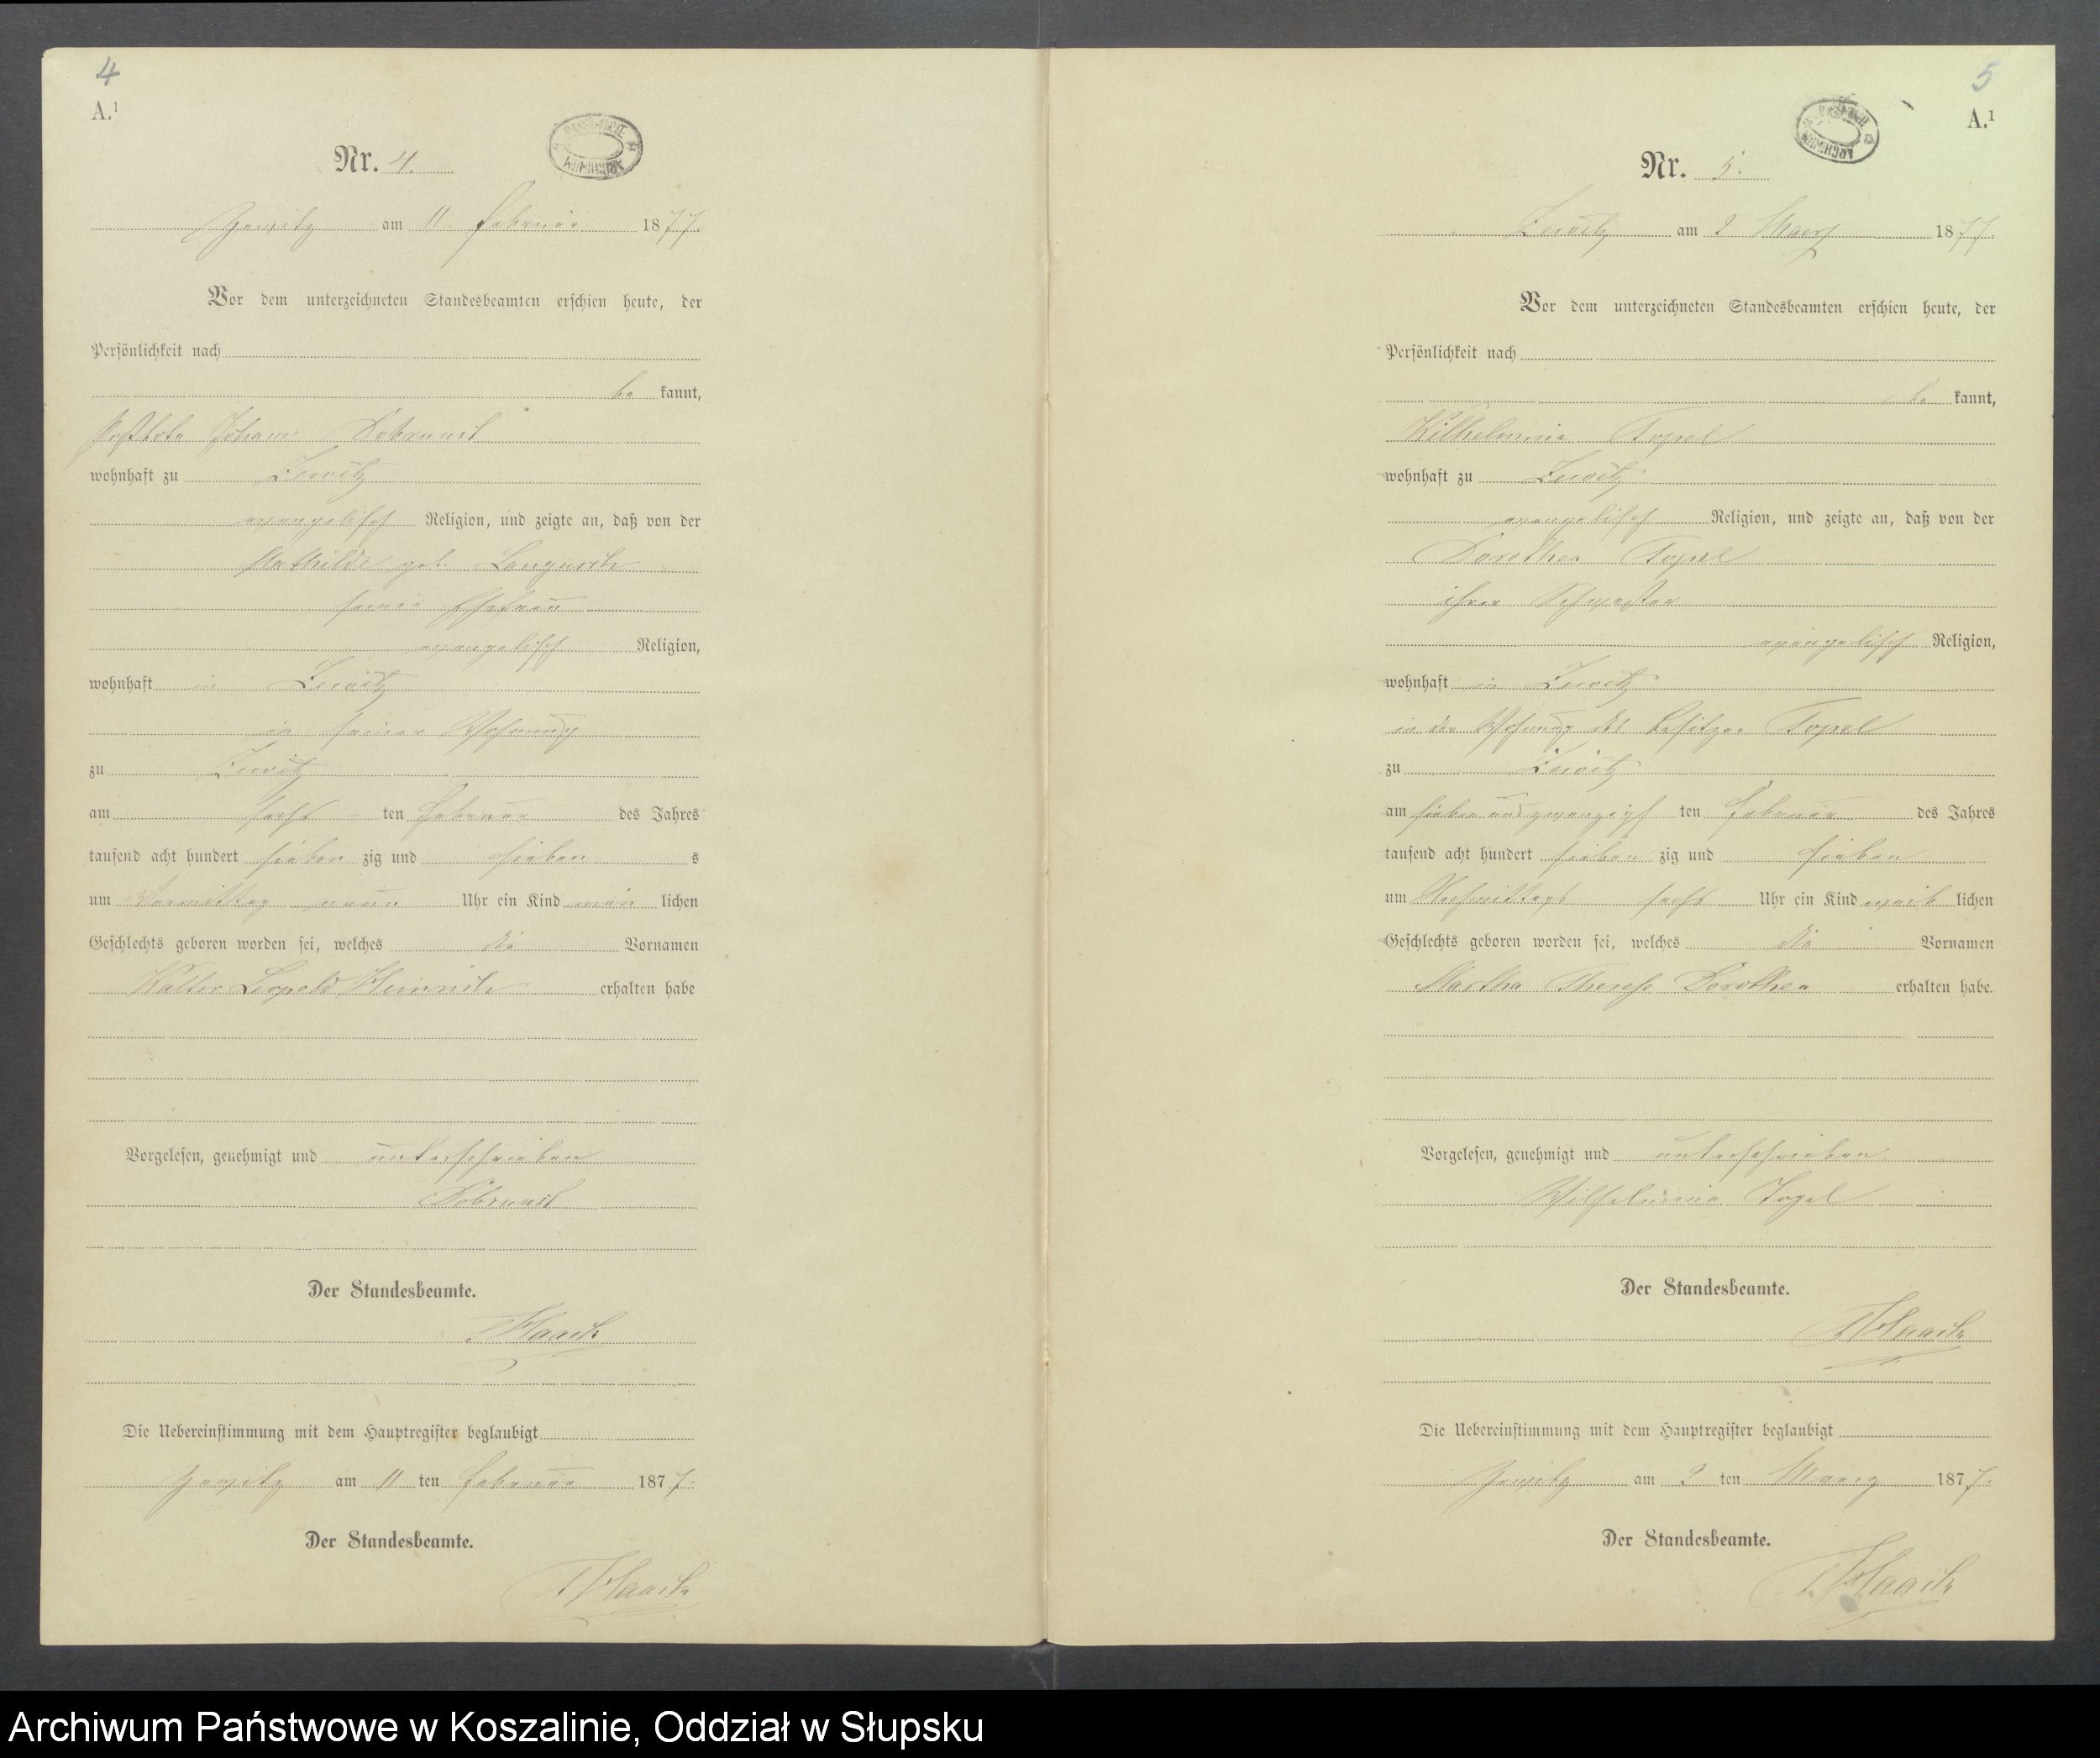 4
A.¹
Nr. 4.
Zewitz am 11. Februar 1877.
Vor dem unterzeichneten Standesbeamten erschien heute, der
Persönlichkeit nach
be kannt,
Postbote Johann
wohnhaft zu Zewitz
evangelisch Religion, und zeigte an, daß von der
Mathilde geb.
seine Ehefrau
evangelisch Religion,
wohnhaft in Zewitz
in seiner Wohnung
zu Zewitz
am sechs ten Februar des Jahres
tausend acht hundert sieben zig und sieben s
um Vormittag neun Uhr ein Kind män lichen
Geschlechts geboren worden sei, welches die Vornamen
Walter Leopold Heinrich erhalten habe
Vorgelesen, genehmigt und unterschrieben
Der Standesbeamte.
Haack
Die Uebereinstimmung mit dem Hauptregister beglaubigt
Zewitz am 11 ten Februar 1877.
Der Standesbeamte.
Haack
5
A.¹
Nr. 5.
Zewitz am 2 Maerz 1877.
Vor dem unterzeichneten Standesbeamten erschien heute, der
Persönlichkeit nach
be kannt,
Wilhelmine Topel
wohnhaft zu Zewitz
evangelisch Religion, und zeigte an, daß von der
Dorothea Topel
ihrer Schwester
evangelisch Religion,
wohnhaft in Zewitz
in der Wohnung des Besitzer Topel
zu Zewitz
am sieben und zwanzigs ten Februar des Jahres
tausend acht hundert sieben zig und sieben
um Nachmittags sechs Uhr ein Kind weib lichen
Geschlechts geboren worden sei, welches die Vornamen
Martha Therese Dorothea erhalten habe.
Vorgelesen, genehmigt und unterschrieben
Wilhelmine Topel
Der Standesbeamte.
Haack
Die Uebereinstimmung mit dem Hauptregister beglaubigt
Zewitz am 2 ten Maerz 1877.
Der Standesbeamte.
Haack
Archiwum Państwowe w Koszalinie, Oddział w Słupsku